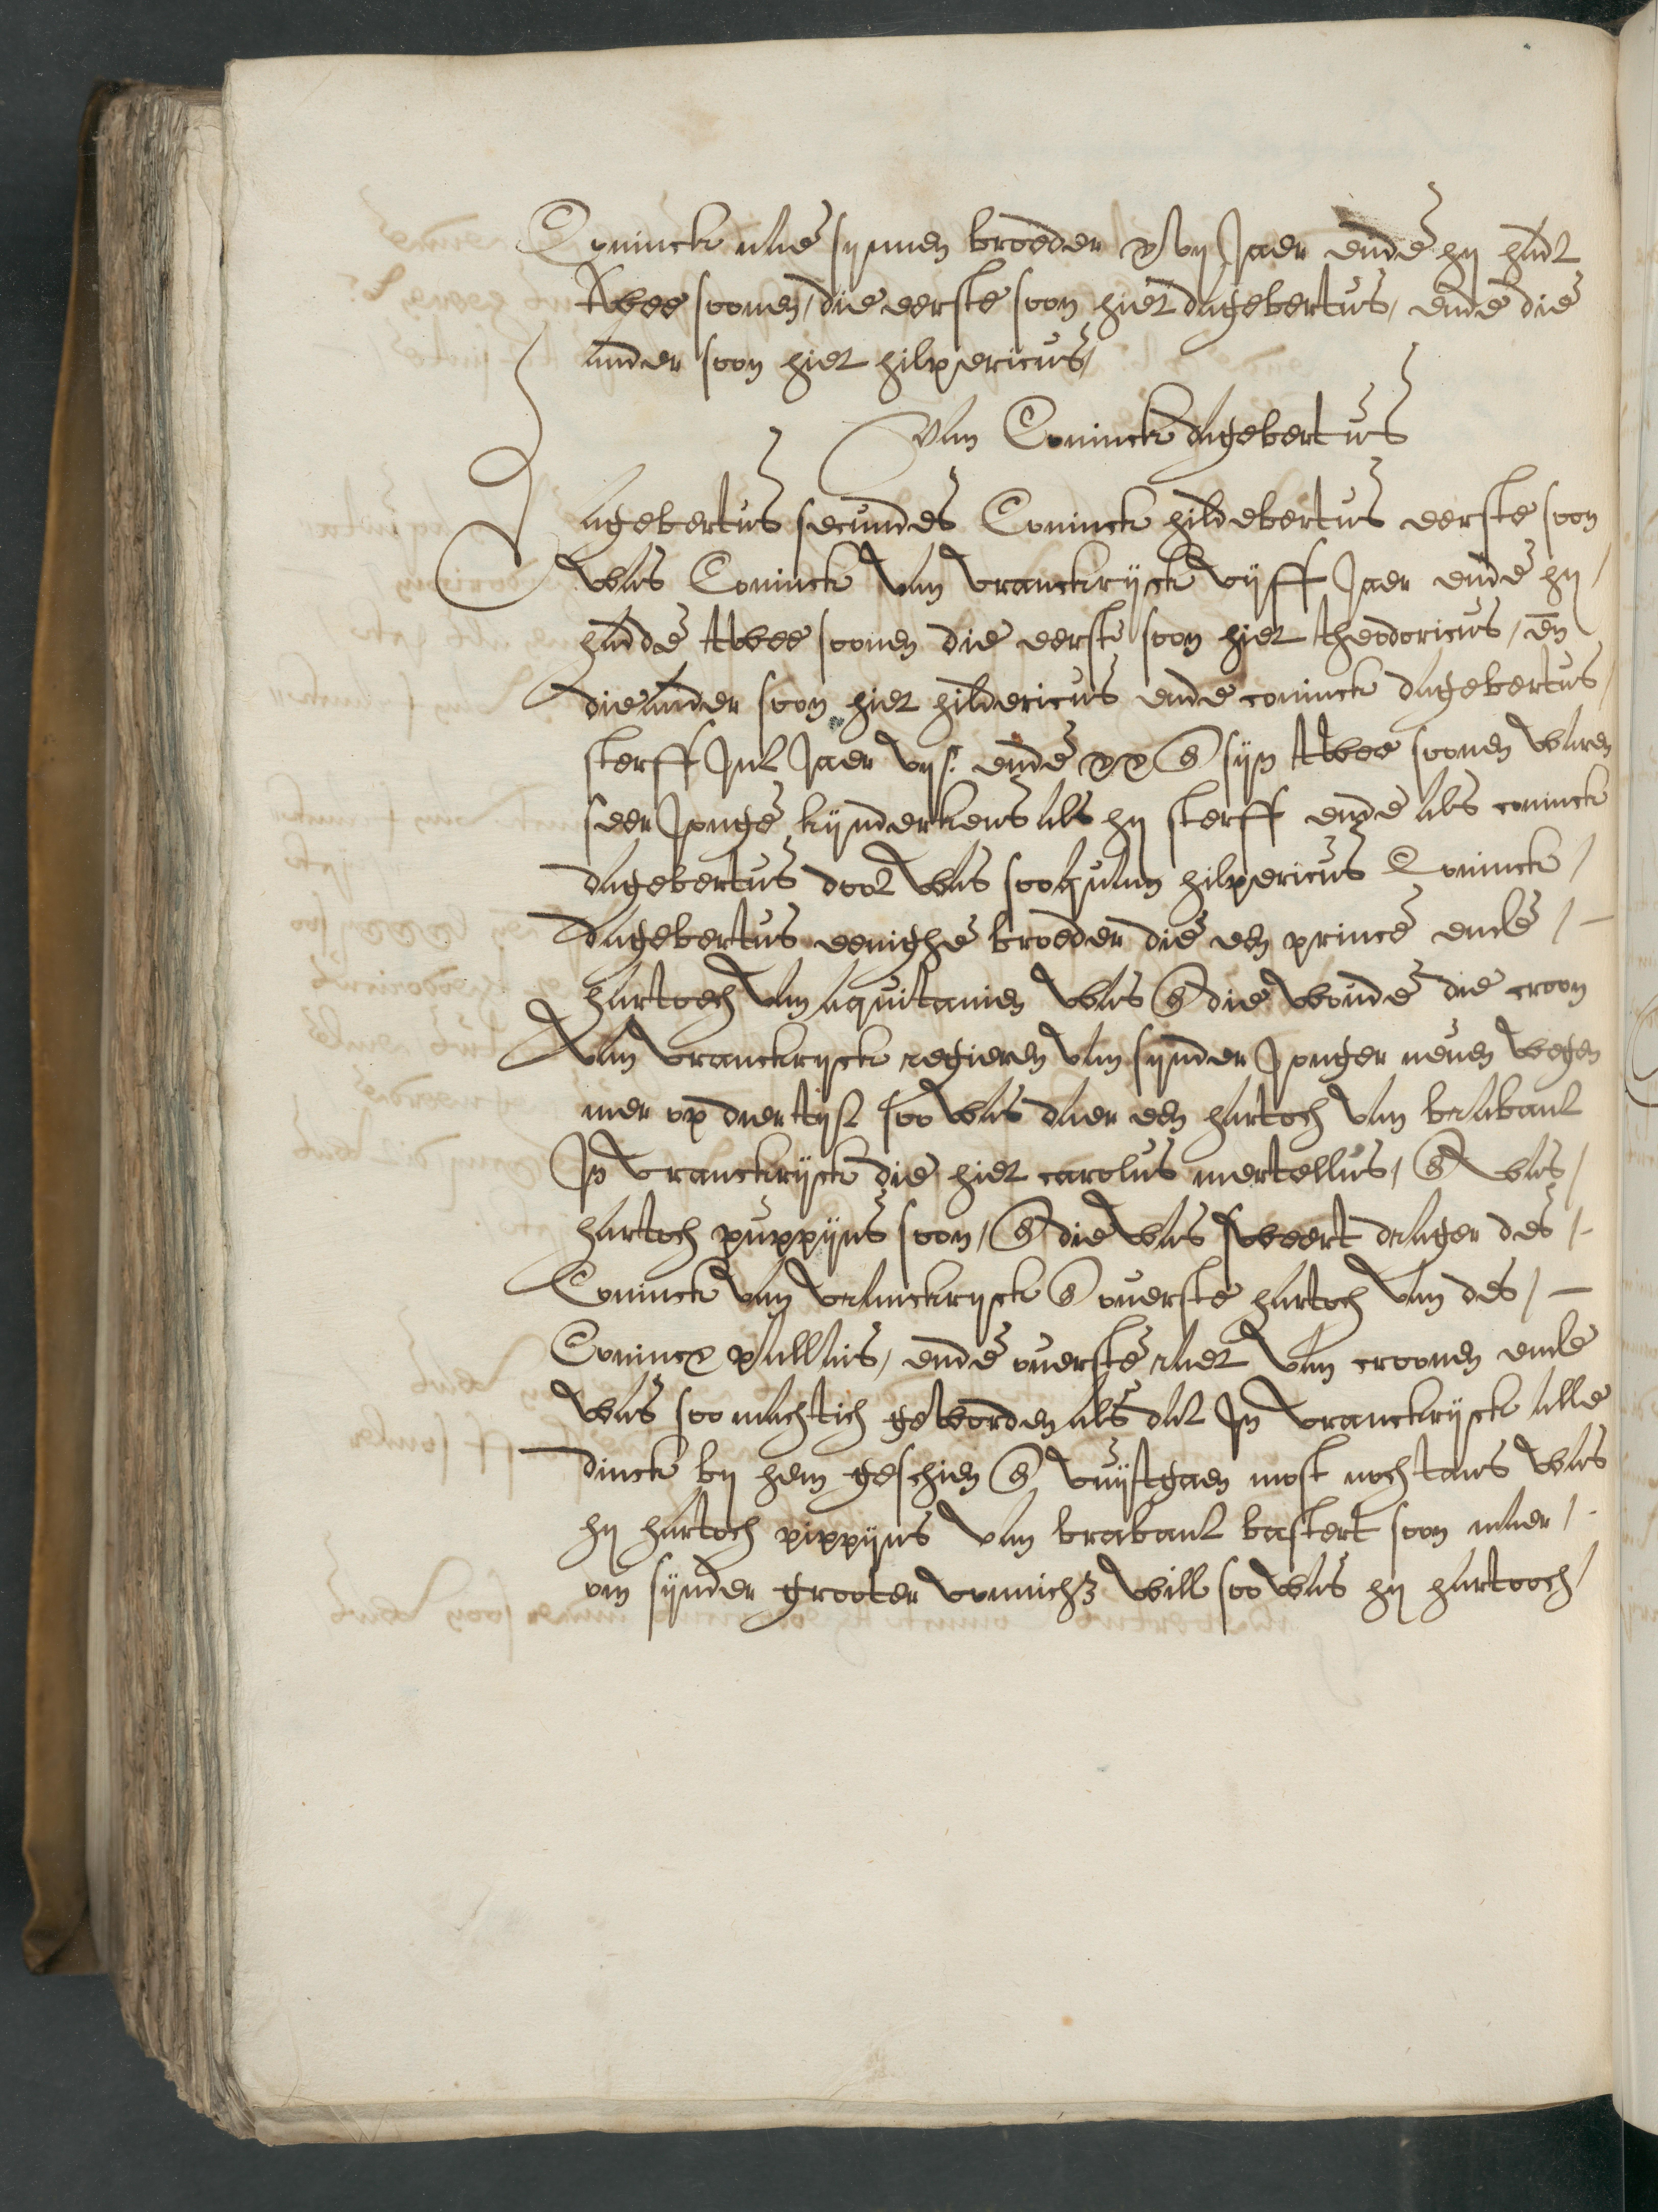 Coninck nae synnen broeder xvij Jaer ende hij hadt
twee soonen, die eerste soon hiet dagebertus, ende die
ander soon hiet hilpericus,
Van Coninck dagebertus
Dagebertus secundes Coninck hildebertus eerste soon
was Coninck van vranckrijck vijff Jaer ende hij
hadde twee soonen die eerste soon hiet theodoricus, en̄
die ander soon hiet hildericus ende coninck dagebertus
sterff Int Jaer vijc ende xx en sijn twee soonen waren
seer Jonge kijnderkens als hij sterff ende als coninck
dagebertus doot was soo quam hilpericus Coninck
dagebertus eenighe broeder die een prince ende
hartoch van aquitanien was en die woude die croon
van vranckryck regieren van synder Jonger neuen wegen
mer op dier tijt soo was daer een hartoch van brabant
In vranckrijck die hiet carolus mertellus, en was
hartoch puppijns soon, en die was sweert drager des
Coninck van vranckryck en ouerste hartoch van des
Conincx pallais, ende ouerste raet van croonen ende
was soo machtich geworden als dat In vranckrijck alle
dinck bij hem geschien en vuijtgaen most nochtans was
hij hartoch pippijns van brabant bastert soon maer
om sijnder grooter vromich3 will soo was hij hartooch